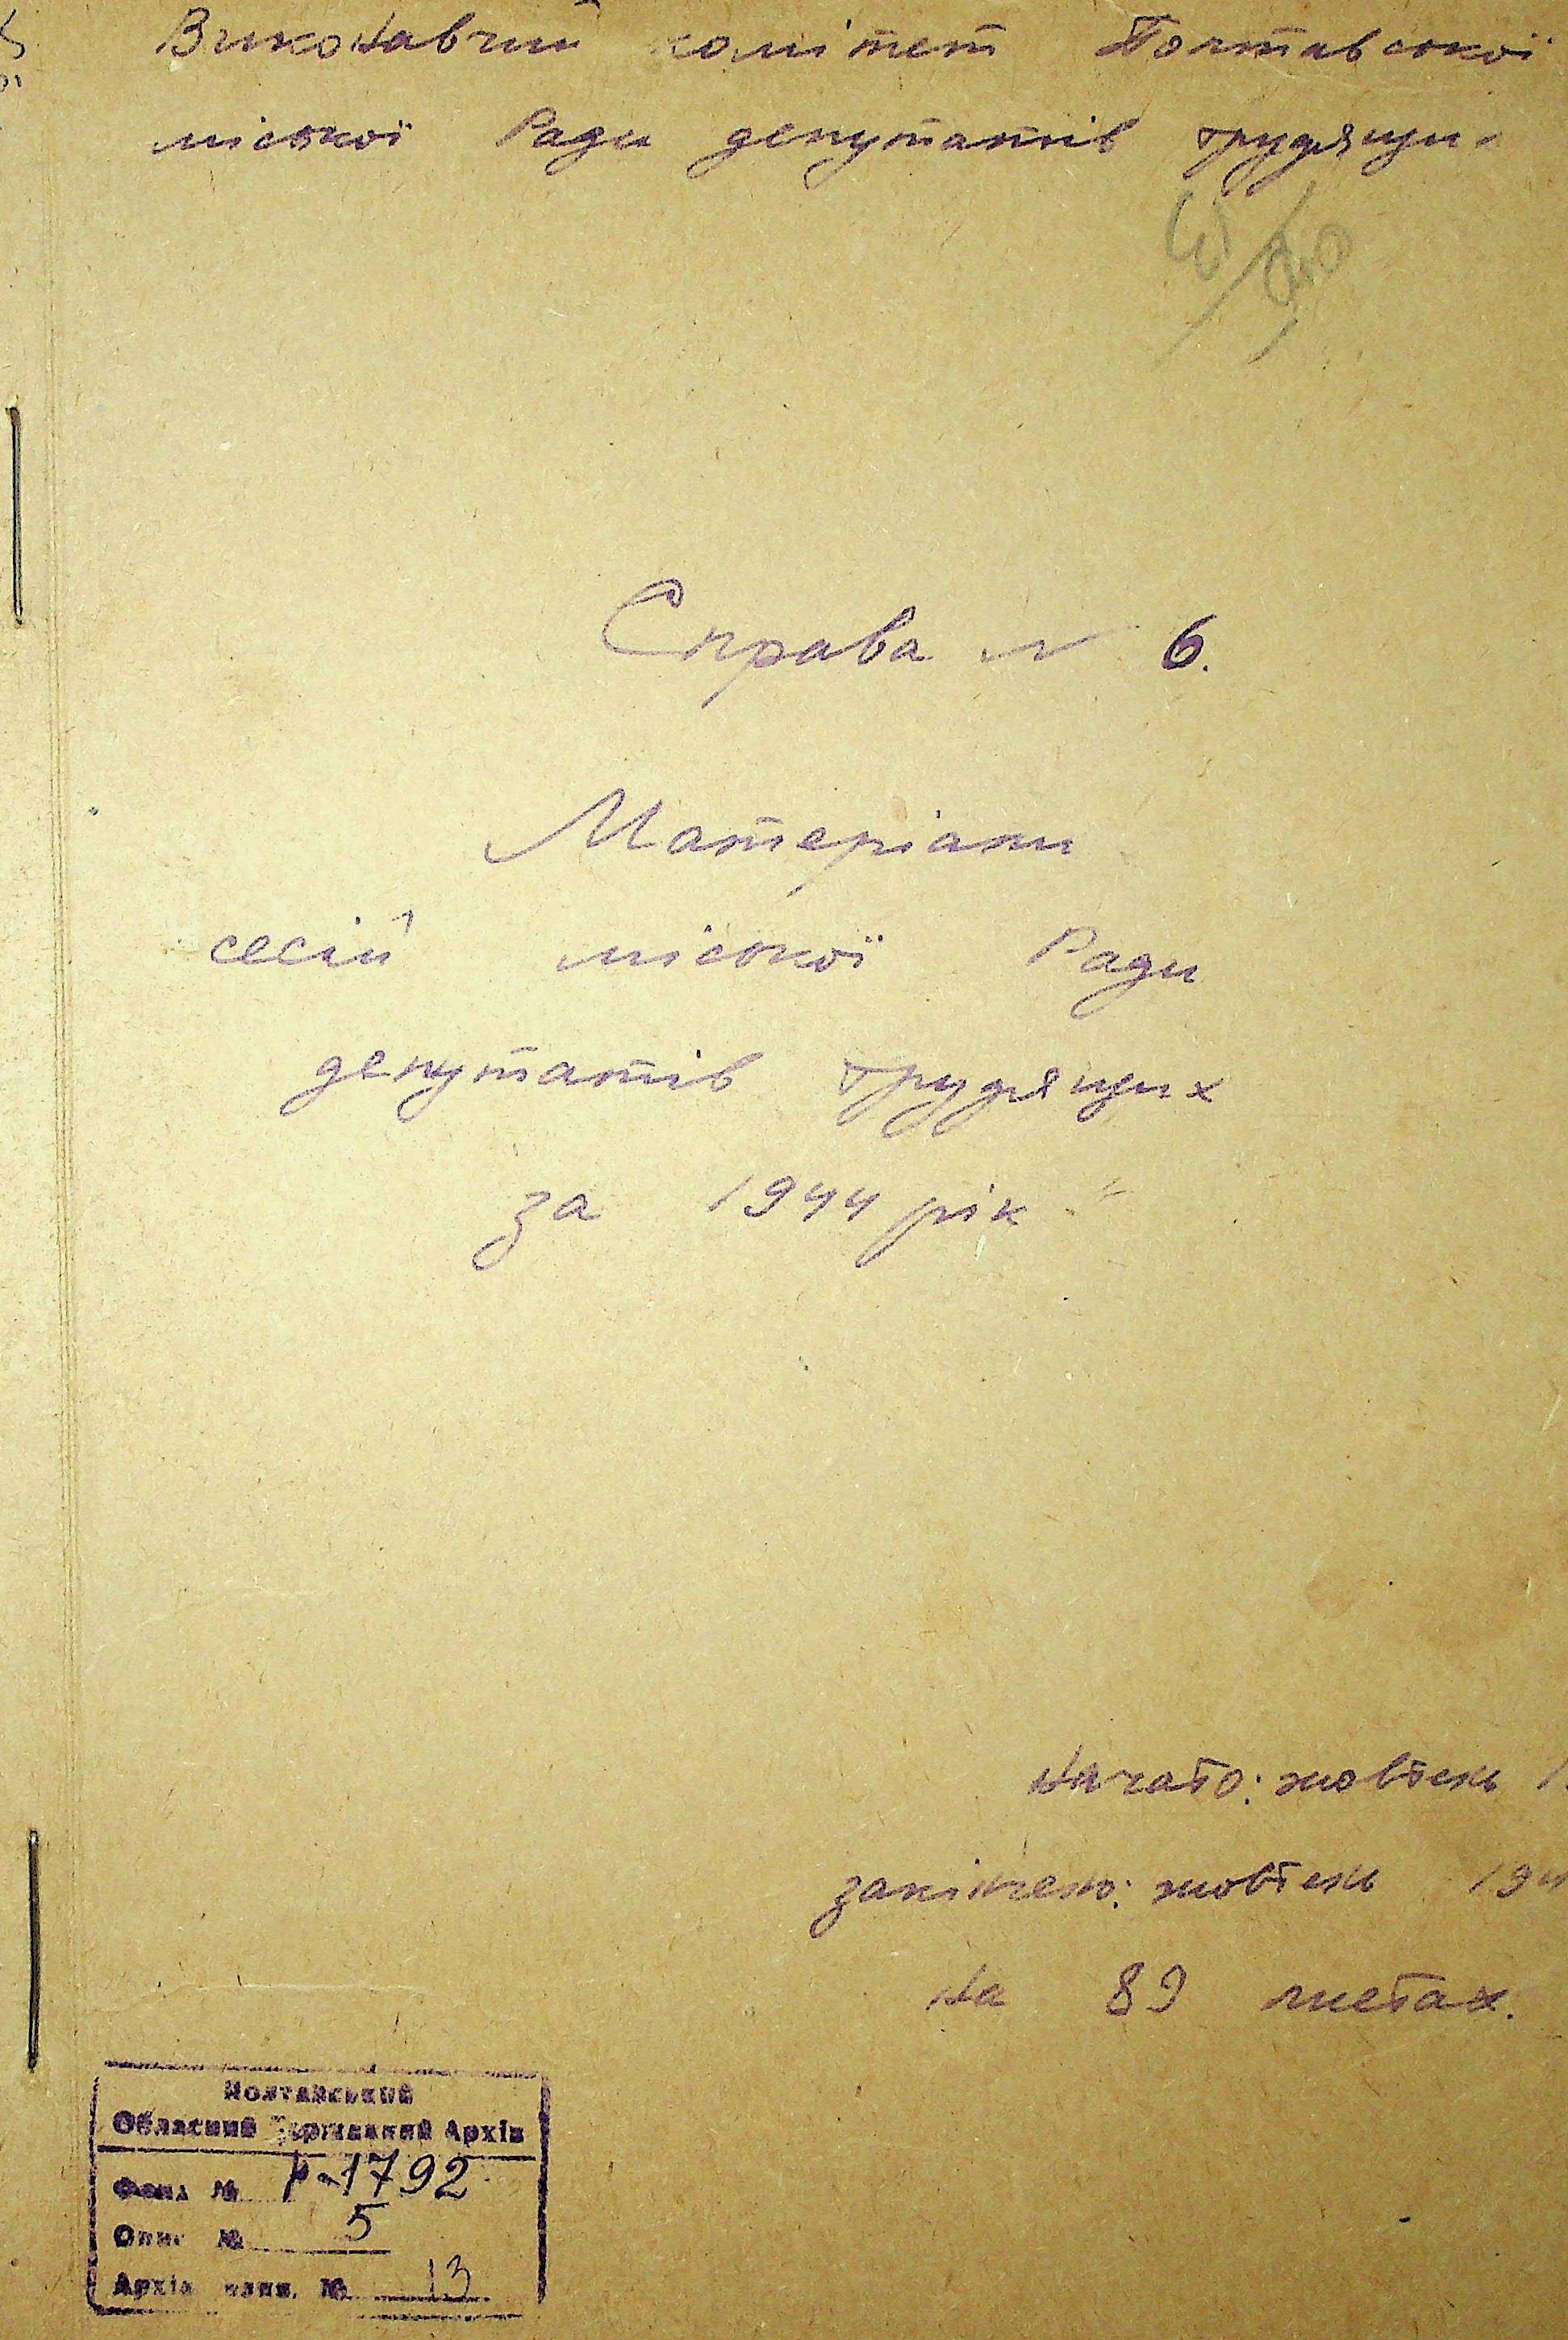 Виконавчий комітет Полтавської
міської Ради депутатів трудящих
Справа № 6.
Матеріали
сесій міської Ради
депутатів трудящих
за 1944 рік"
Начато: жовтень 1
закінчено: жовтень 194
На 89 листах.
Полтавський
Обласний Державний Архів
Фонд № Р-1792
Опис № 5
Архів №  13